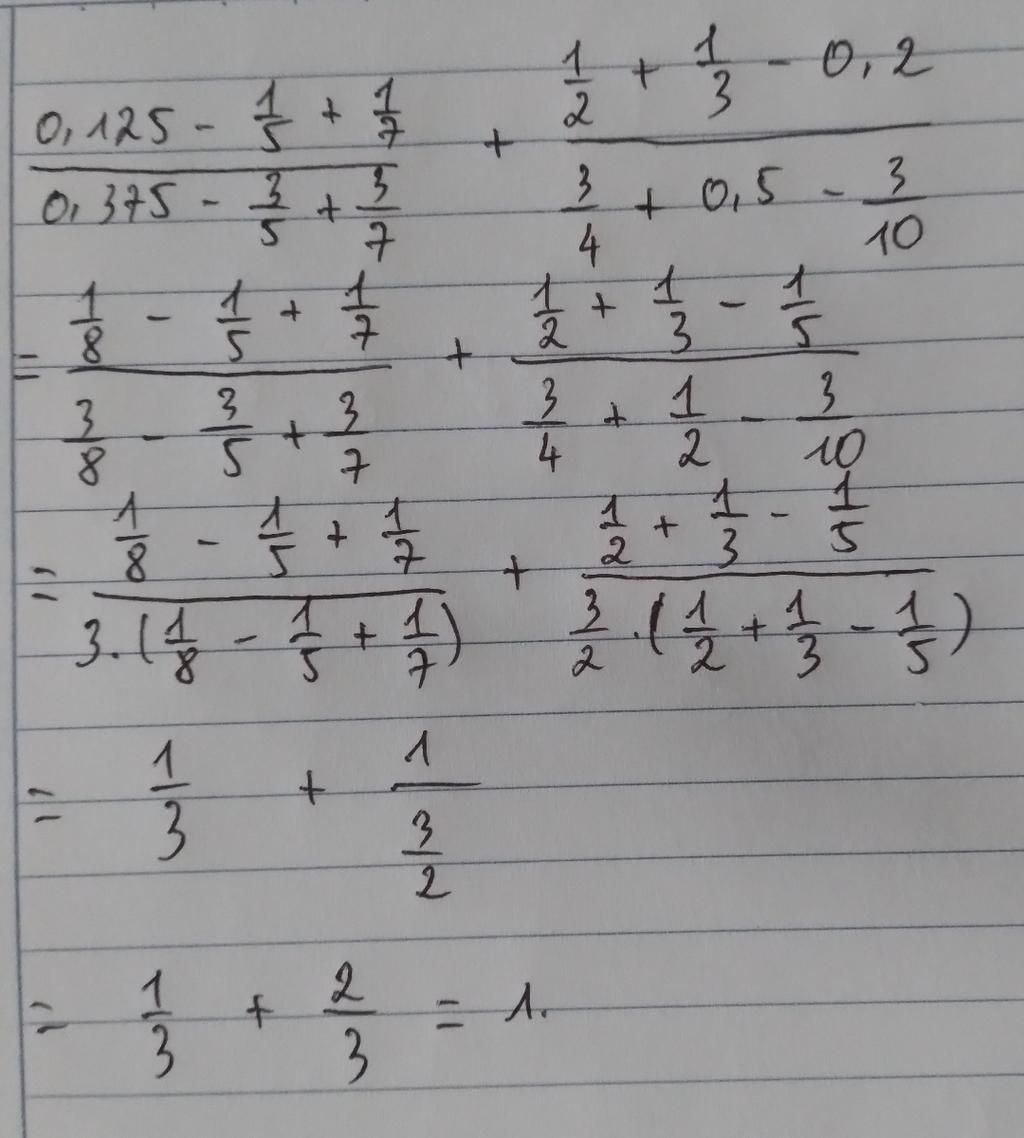 \frac{0,125 - \frac{1}{5} + \frac{1}{7}}{0,375 - \frac{3}{5} + \frac{3}{7}} + \frac{\frac{1}{2} + \frac{1}{3} - 0,2}{\frac{3}{4} + 0,5 - \frac{3}{10}}
= \frac{\frac{1}{8} - \frac{1}{5} + \frac{1}{7}}{\frac{3}{8} - \frac{3}{5} + \frac{3}{7}} + \frac{\frac{1}{2} + \frac{1}{3} - \frac{1}{5}}{\frac{3}{4} + \frac{1}{2} - \frac{3}{10}}
= \frac{\frac{1}{8} - \frac{1}{5} + \frac{1}{7}}{3.(\frac{1}{8} - \frac{1}{5} + \frac{1}{7})} + \frac{\frac{1}{2} + \frac{1}{3} - \frac{1}{5}}{\frac{3}{2}.(\frac{1}{2} + \frac{1}{3} - \frac{1}{5})}
= \frac{1}{3} + \frac{1}{\frac{3}{2}}
= \frac{1}{3} + \frac{2}{3} = 1.